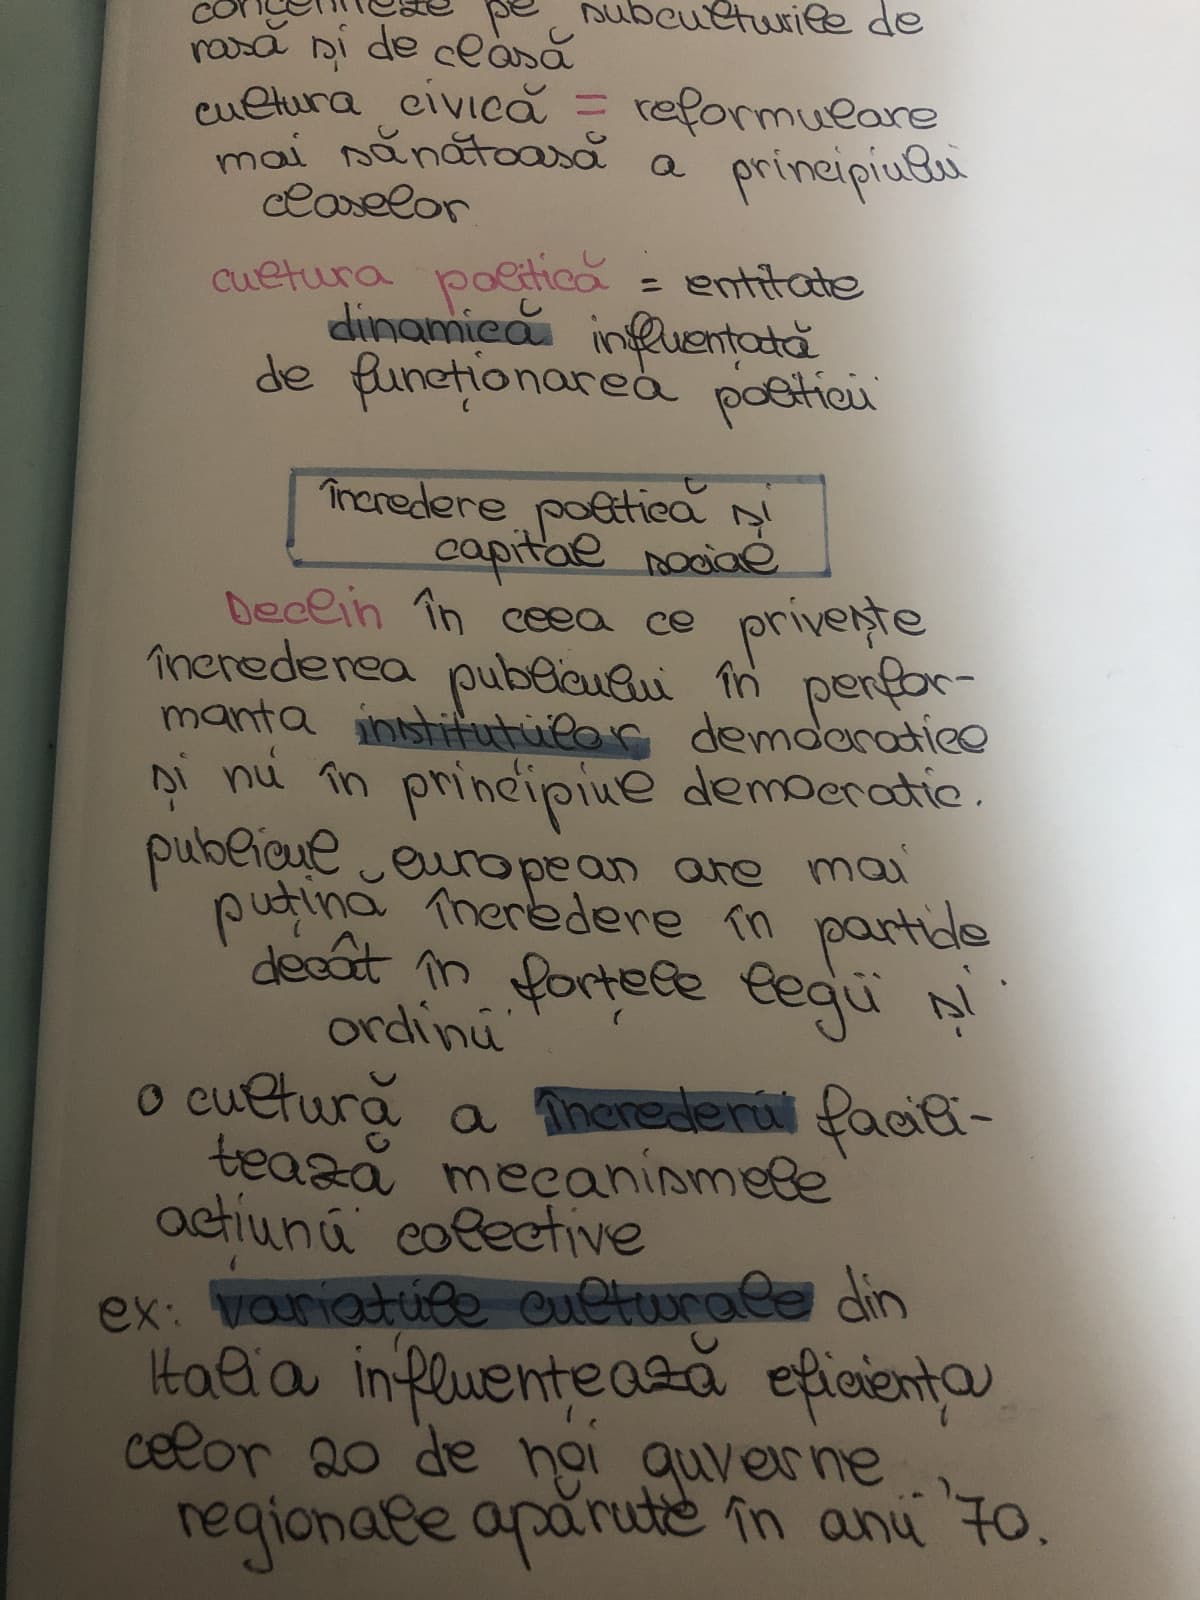 concentreze pe subculturile de
rasă și de clasă
cultura civică = reformulare
mai sănătoasă a principiului
claselor
cultura politică = entitate
dinamică influențată
de funcționarea politicii
încredere politică și
capital social
Declin în ceea ce privește
încrederea publicului în perfor-
manta instituțiilor democratice
și nu în principiul democratic.
publicul european are mai
puțină încredere în partide
decât în forțele legii și
ordinii
o cultură a încrederii facili-
tează mecanismele
acțiunii colective
ex: variațiile culturale din
Italia influențează eficiența
celor 20 de noi guverne
regionale apărute în anii '70.